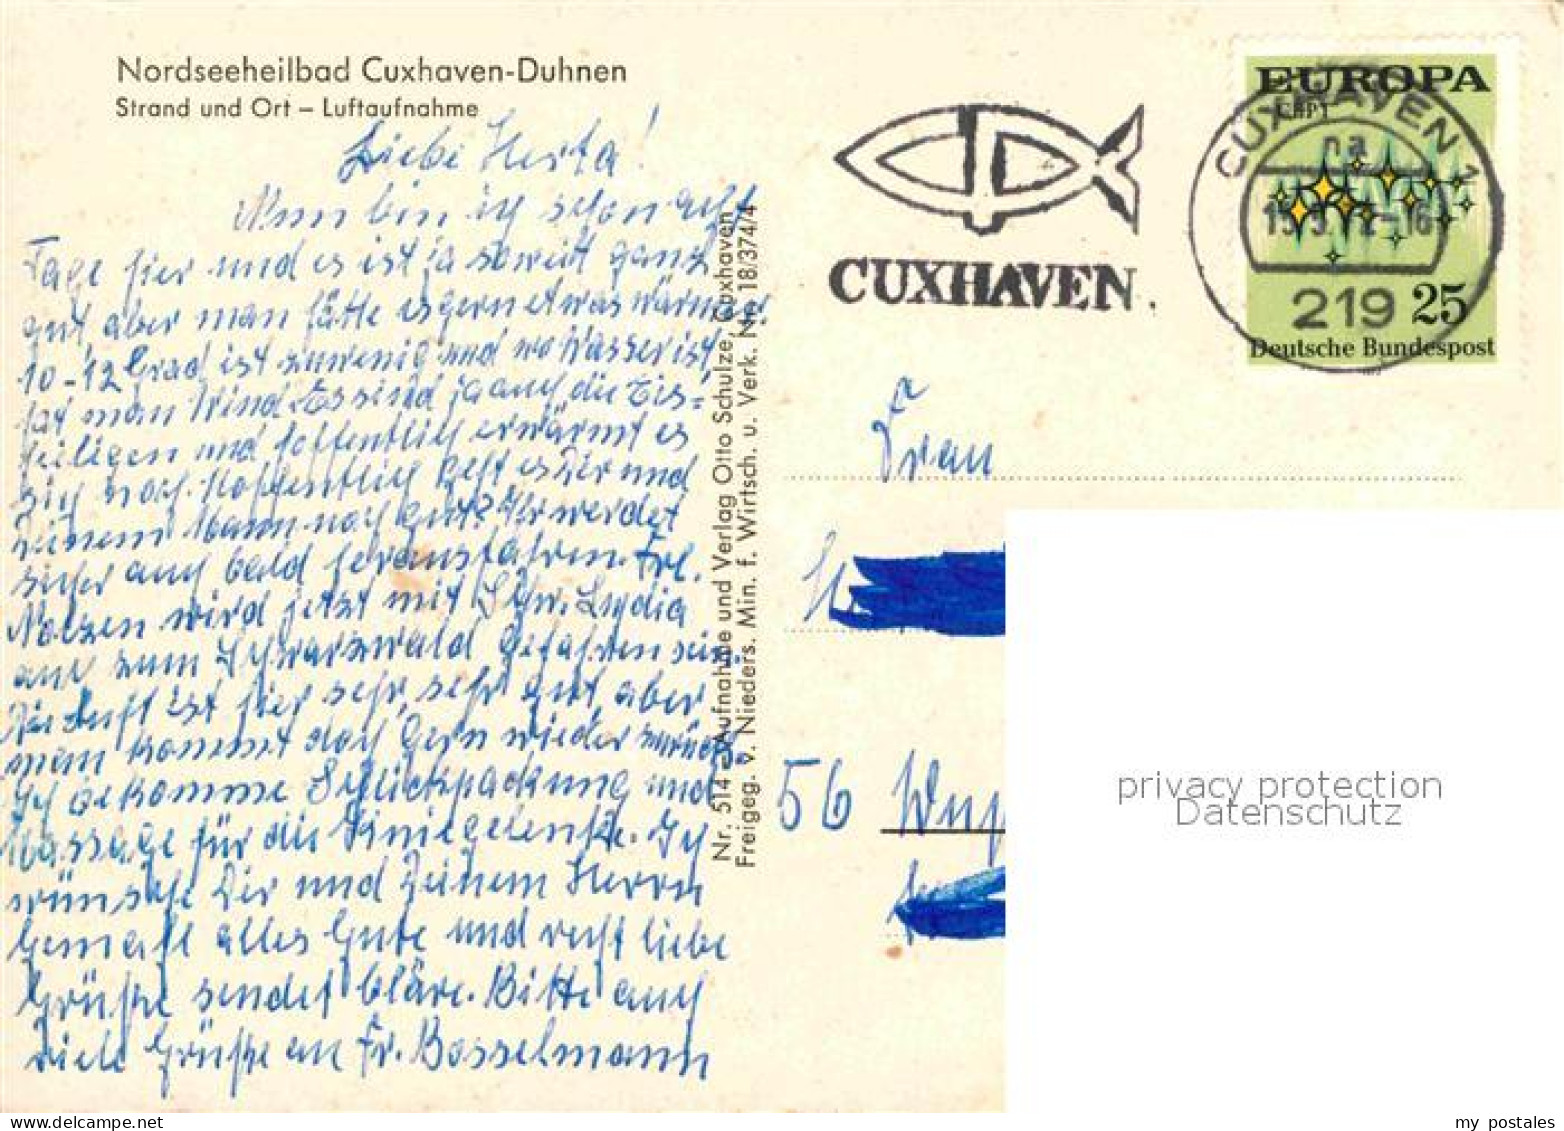 Nordseeheilbad Cuxhaven-Duhnen
Strand und Ort – Luftaufnahme
Liebe Herta!
Nun bin ich schon acht
Tage hier und es ist ja soweit ganz
gut, aber man hätte es gern etwas wärmer
10-12 Grad ist zuwenig und wo Wasser ist,
hat man Wind. Es sind ja auch die Eis-
heiligen und hoffentlich erwärmt es
sich noch. Hoffentlich geht es Dir und
Deinem Mann noch gut? Ihr werdet
sicher auch bald heraus fahren. Frl.
Nolzen wird jetzt mit Schw. Lydia
auf zum Schwarzwald gefahren sein.
Die Luft ist hier sehr, sehr gut, aber
man kommt doch gern wieder zurück.
Ich bekomme Schlickpackung und
Massage für die Kniegelenke. Ich
wünsche Dir und Deinem Herrn
Gemahl alles Gute und recht liebe
Grüße sendet Kläre. Bitte auch
viele Grüße an Fr. Bosselmann
Nr. 514 – Aufnahme und Verlag Otto Schulze, Cuxhaven
Freigeg. v. Nieders. Min. f. Wirtsch. u. Verk. Nr. 18/374/4
CUXHAVEN
EUROPA
CEPT
25
Deutsche Bundespost
CUXHAVEN 1
na
219
Frau
56 Wup
privacy protection
Datenschutz
my postales